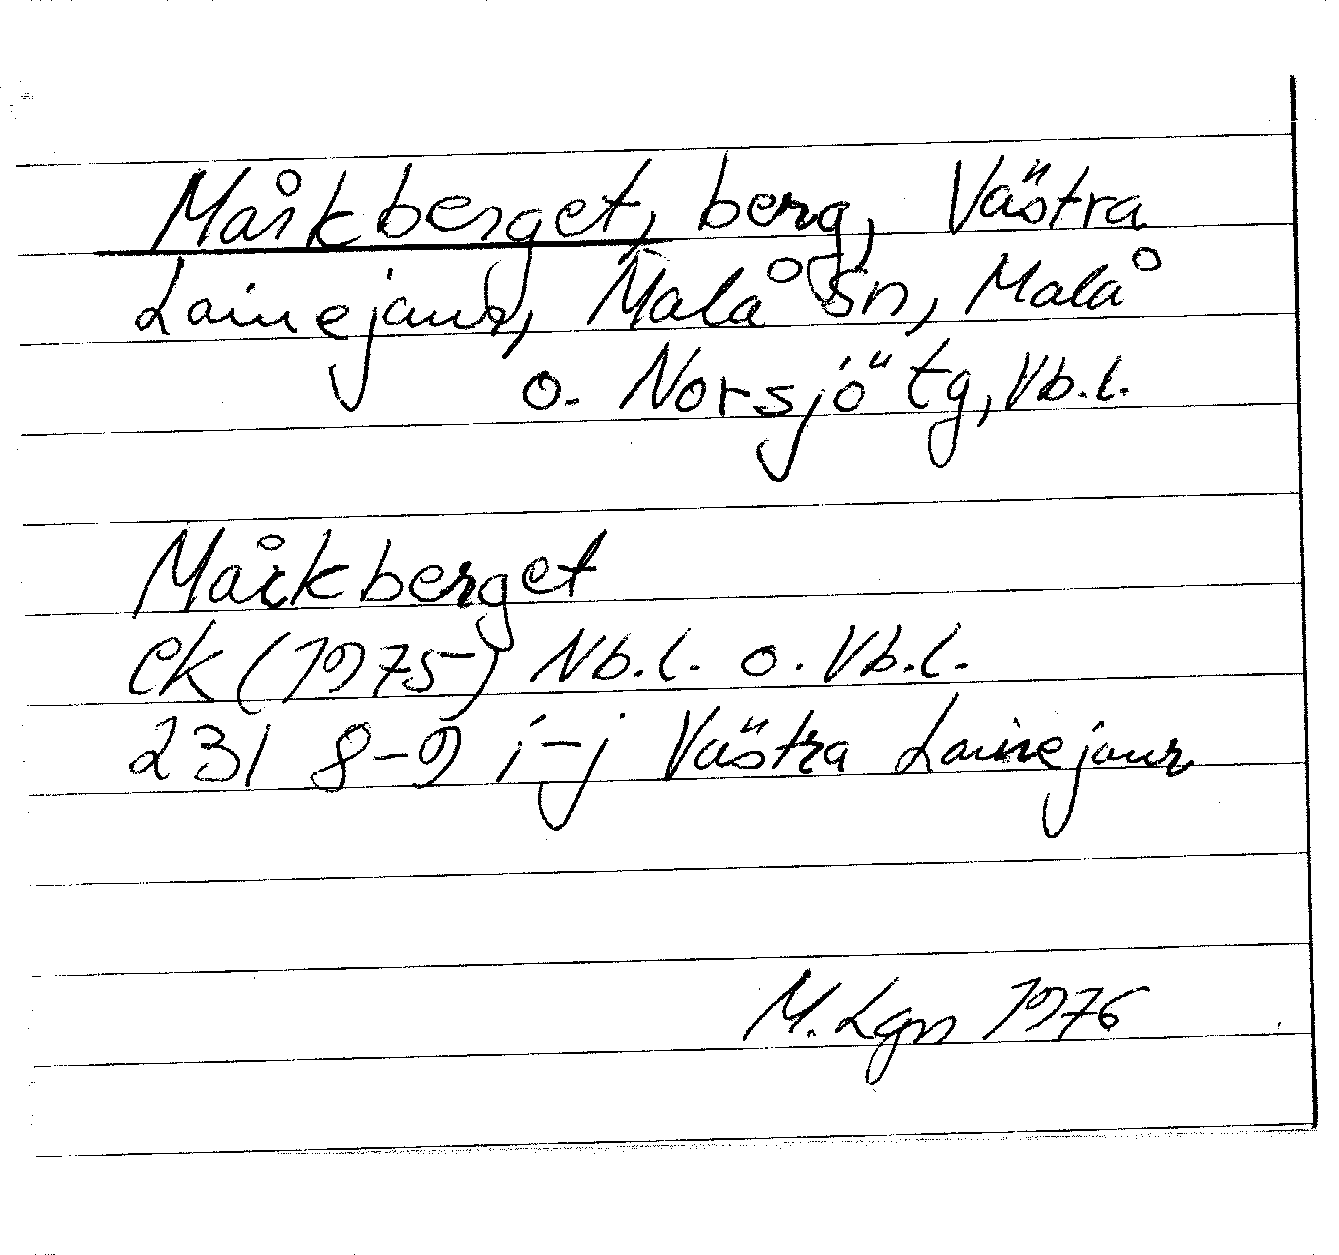 Måikberget, berg, Västra
Lainejaur, Malå sn, Malå
o. Norsjö tg, Vb.l.
Måikberget
ek (1975) Nb.l. o. Vb.l.
231 8-9 i-j Västra Lainejaur
M. Lgn 1976